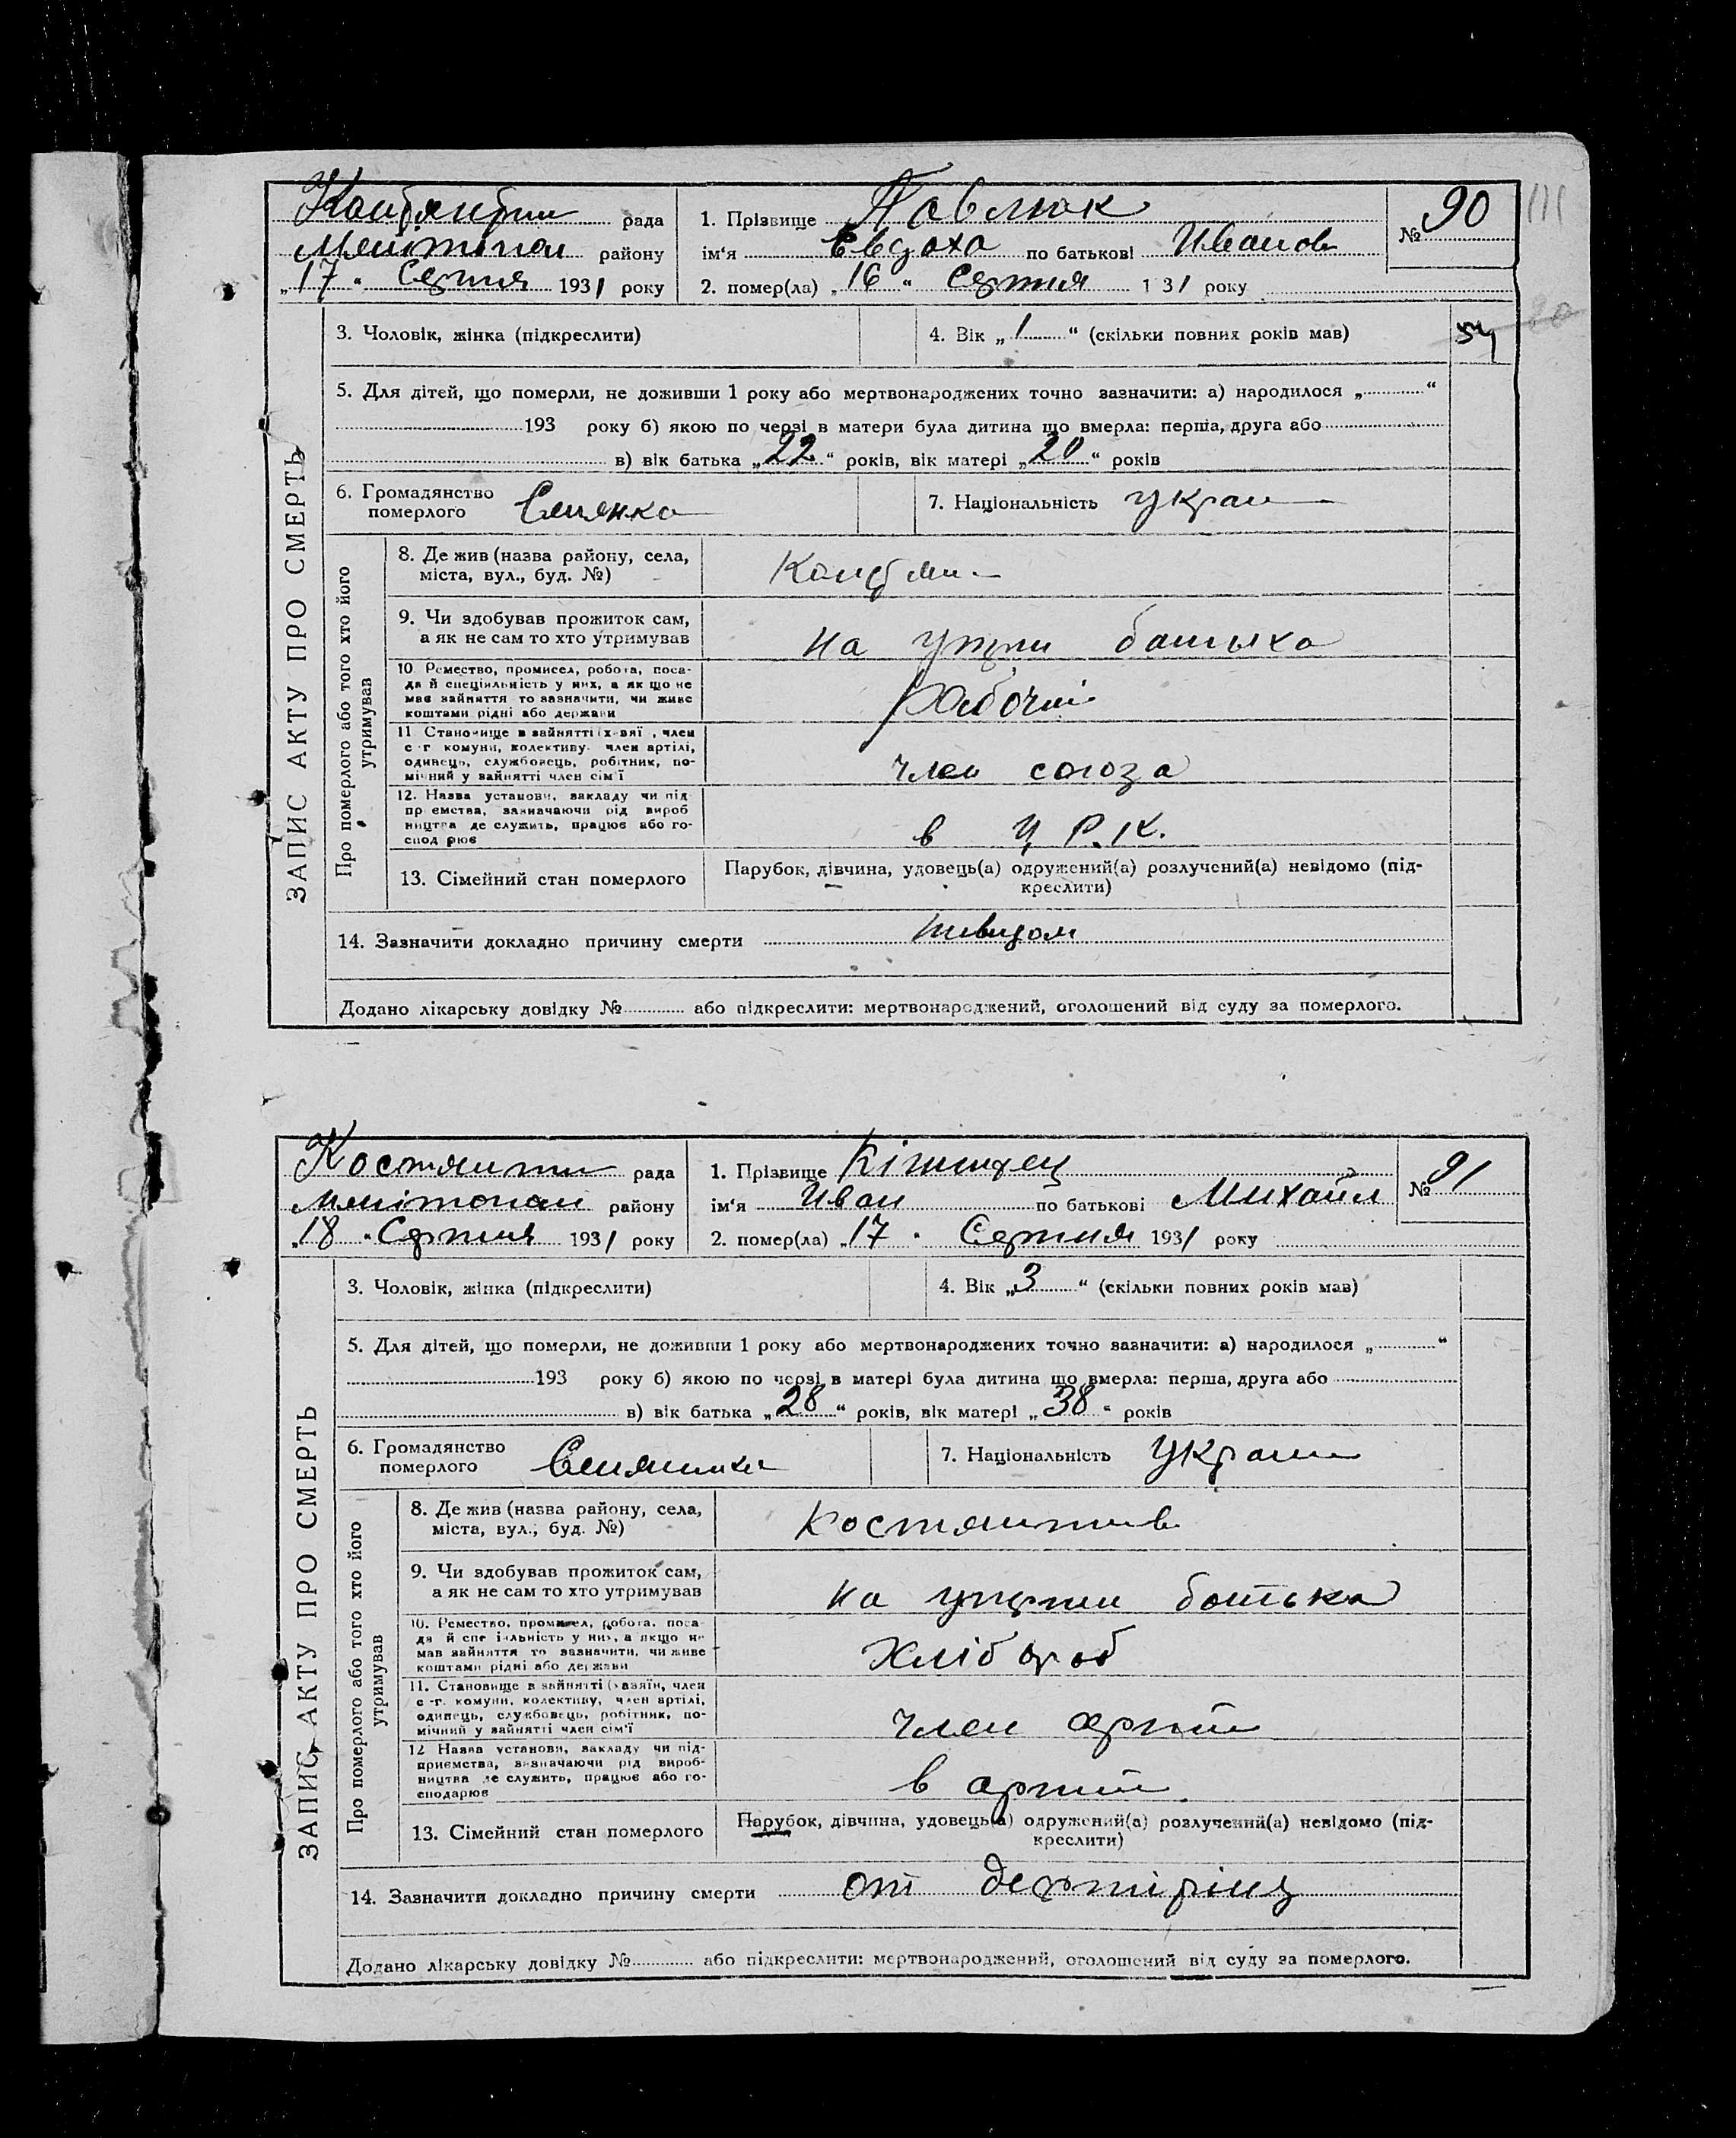 рада 1. Прізвище Павлюк № 90
району ім‘я Евдоха по батькові Иванов
„17“ Серпня 1931 року 2. помер(ла) „16“ Серпня 1 31 року
3. Чоловік, жінка (підкреслити) 4. Вік „1“ (скільки повних років мав)
5. Для дітей, що померли, не доживши 1 року або мертвонароджених точно зазначити: а) народилося „ “
193 року б) якою по черзі в матери була дитина що вмерла: перша, друга або
в) вік батька „22“ років, вік матері „20“ років
6. Громадянство
померлого Селянка 7. Національність Украи
8. Де жив (назва району, села,
міста, вул., буд. №)
9. Чи здобував прожиток сам,
а як не сам то хто утримував на батька
10 Ремество, промисел, робота, поса-
да й спеціяльність у них, а як що не
має зайняття то зазначити, чи живе
коштами рідні або держави Рабочий
11 Становище в зайнятті (х-зяї , член
с -г комуни, колективу- член артілі,
одинець, службовець, робітник, по-
мічний у зайнятті член сім‘ї член союза
12. Назва установи, закладу чи під
пр ємства, зазначаючи рід вироб
ництва де служить, працює або го-
спод рює в Ц Р. К.
13. Сімейний стан померлого Парубок, дівчина, удовець(а) одружений(а) розлучений(а) невідомо (під-
креслити)
14. Зазначити докладно причину смерти
Додано лікарську довідку № або підкреслити: мертвонароджений, оголошений від суду за померлого.
ЗАПИС АКТУ ПРО СМЕРТЬ
Про померлого або того хто його
утримував
рада 1. Прізвище № 91
району ім‘я Иван по батькові Михайл
„18“ Серпня 1931 року 2. помер(ла) „17“ Серпня 1931 року
3. Чоловік, жінка (підкреслити) 4. Вік „3“ (скільки повних років мав)
5. Для дітей, що померли, не доживши 1 року або мертвонароджених точно зазначити: а) народилося „ “
193 року б) якою по черзі в матері була дитина що вмерла: перша, друга або
в) вік батька „28“ років, вік матері „38“ років
6. Громадянство
померлого 7. Національність Украи
8. Де жив (назва району, села,
міста, вул., буд. №)
9. Чи здобував прожиток сам,
а як не сам то хто утримував на батька
10. Ремество, промисел, робота, поса-
да й спеціяльність у них, а якщо не
мав зайняття то зазначити, чи живе
коштами рідні або держави Хлібороб
11. Становище в зайнятті (хазяїн, член
с -г. комуни, колективу, член артілі,
одинець, службовець, робітник, по-
мічний у зайнятті член сім‘ї член
12 Назва установи, закладу чи під-
приємства, зазначаючи рід вироб-
ництва де служить, працює або го-
сподарює в
13. Сімейний стан померлого Парубок, дівчина, удовець(а) одружений(а) розлучений(а) невідомо (під-
креслити)
14. Зазначити докладно причину смерти от
Додано лікарську довідку № або підкреслити: мертвонароджений, оголошений від суду за померлого.
ЗАПИС АКТУ ПРО СМЕРТЬ
Про померлого або того хто його
утримував